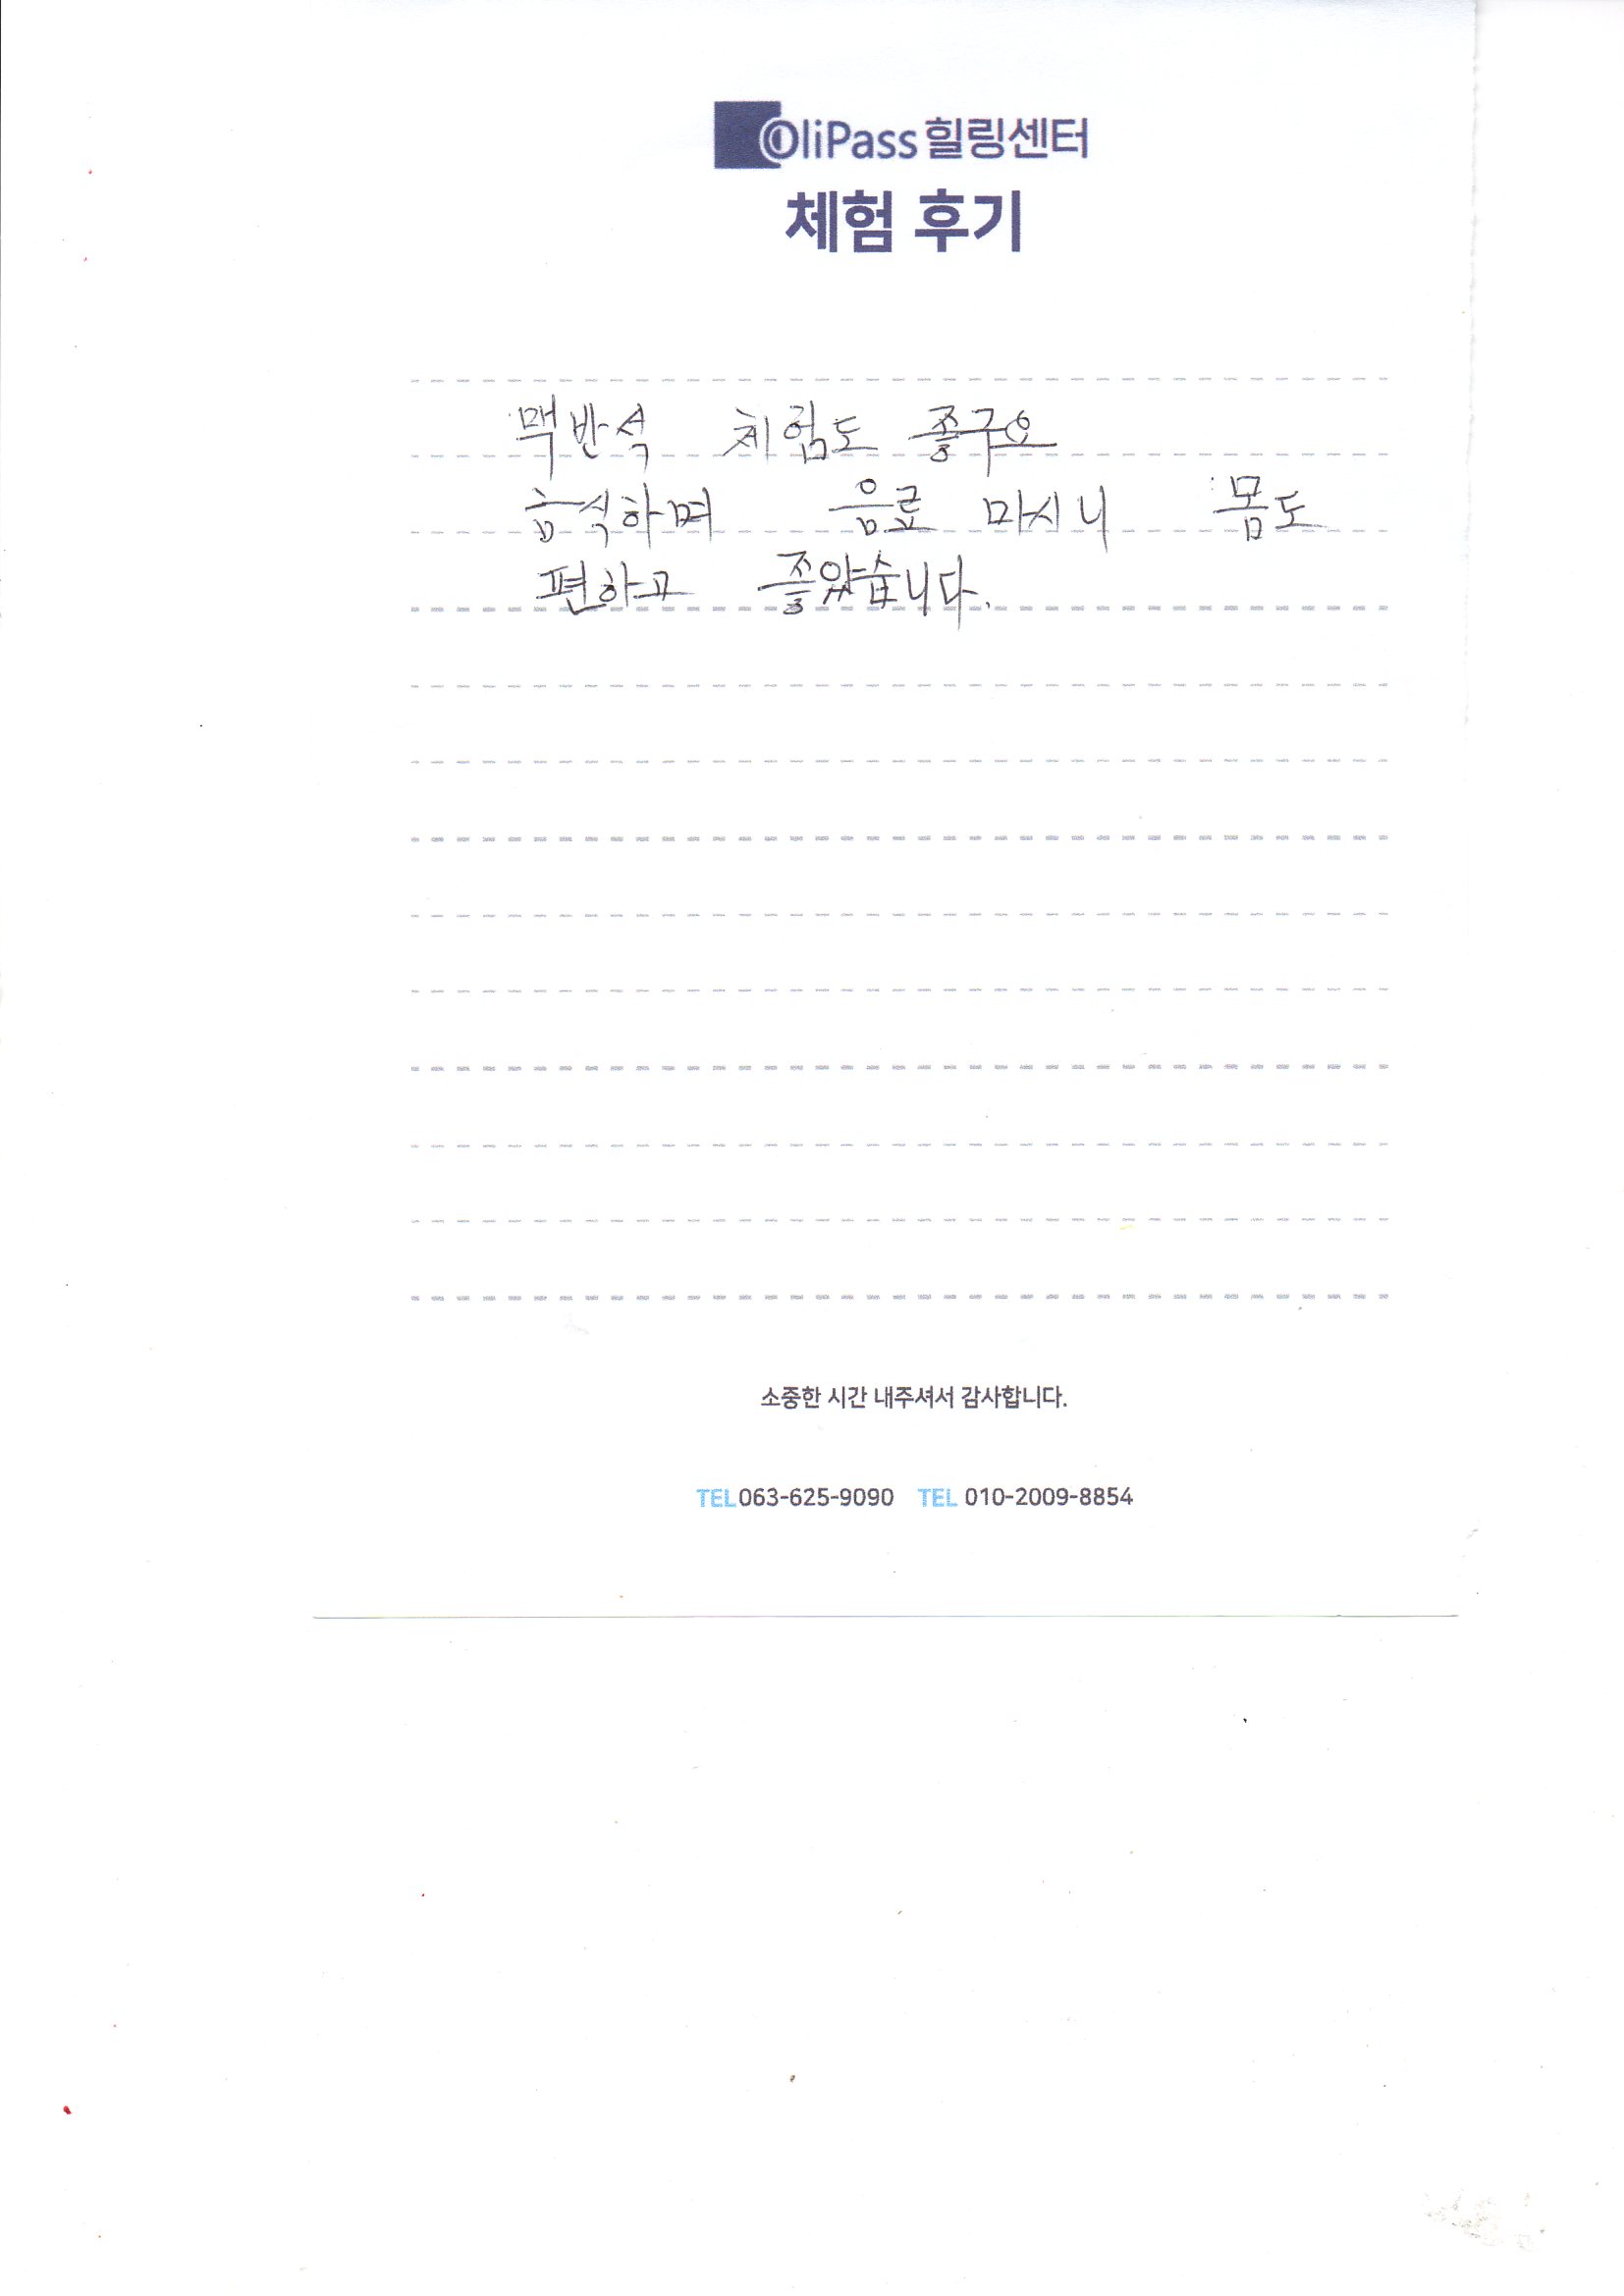 OliPass 힐링센터
체험 후기
맥반석 체험도 좋구요
휴식하며 음료 마시니 몸도
편하고 좋았습니다.
소중한 시간 내주셔서 감사합니다.
TEL 063-625-9090 TEL 010-2009-8854